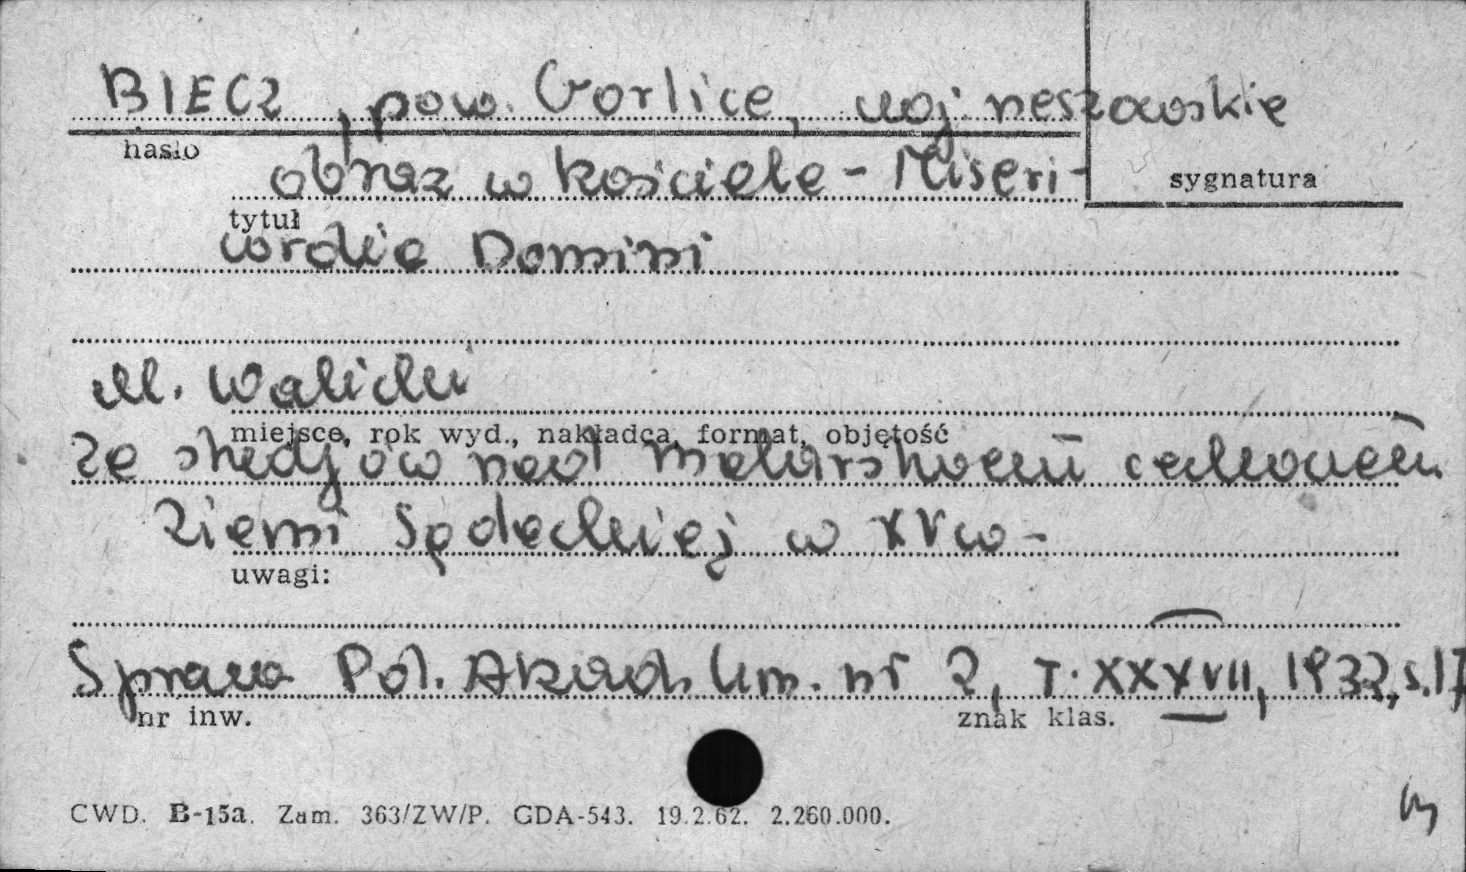 BIECZ, pow. Gorlice, woj. rzeszowskie
hasło
obraz w kościele - Miseri-
sygnatura
tytuł
cordia Domini
M. Walicki
miejsce, rok wyd., nakładca, format, objętość
Ze studjów nad malarstwem cechowem
Ziemi Sądeckiej w XV w -
uwagi:
Spraw. Pol. Akad. Um. nr 2, T. XXXVII, 1932, s. 17
nr inw.
znak klas.
CWD. B-15a. Zam. 363/ZW/P. GDA-543. 19.2.62. 2.260.000.